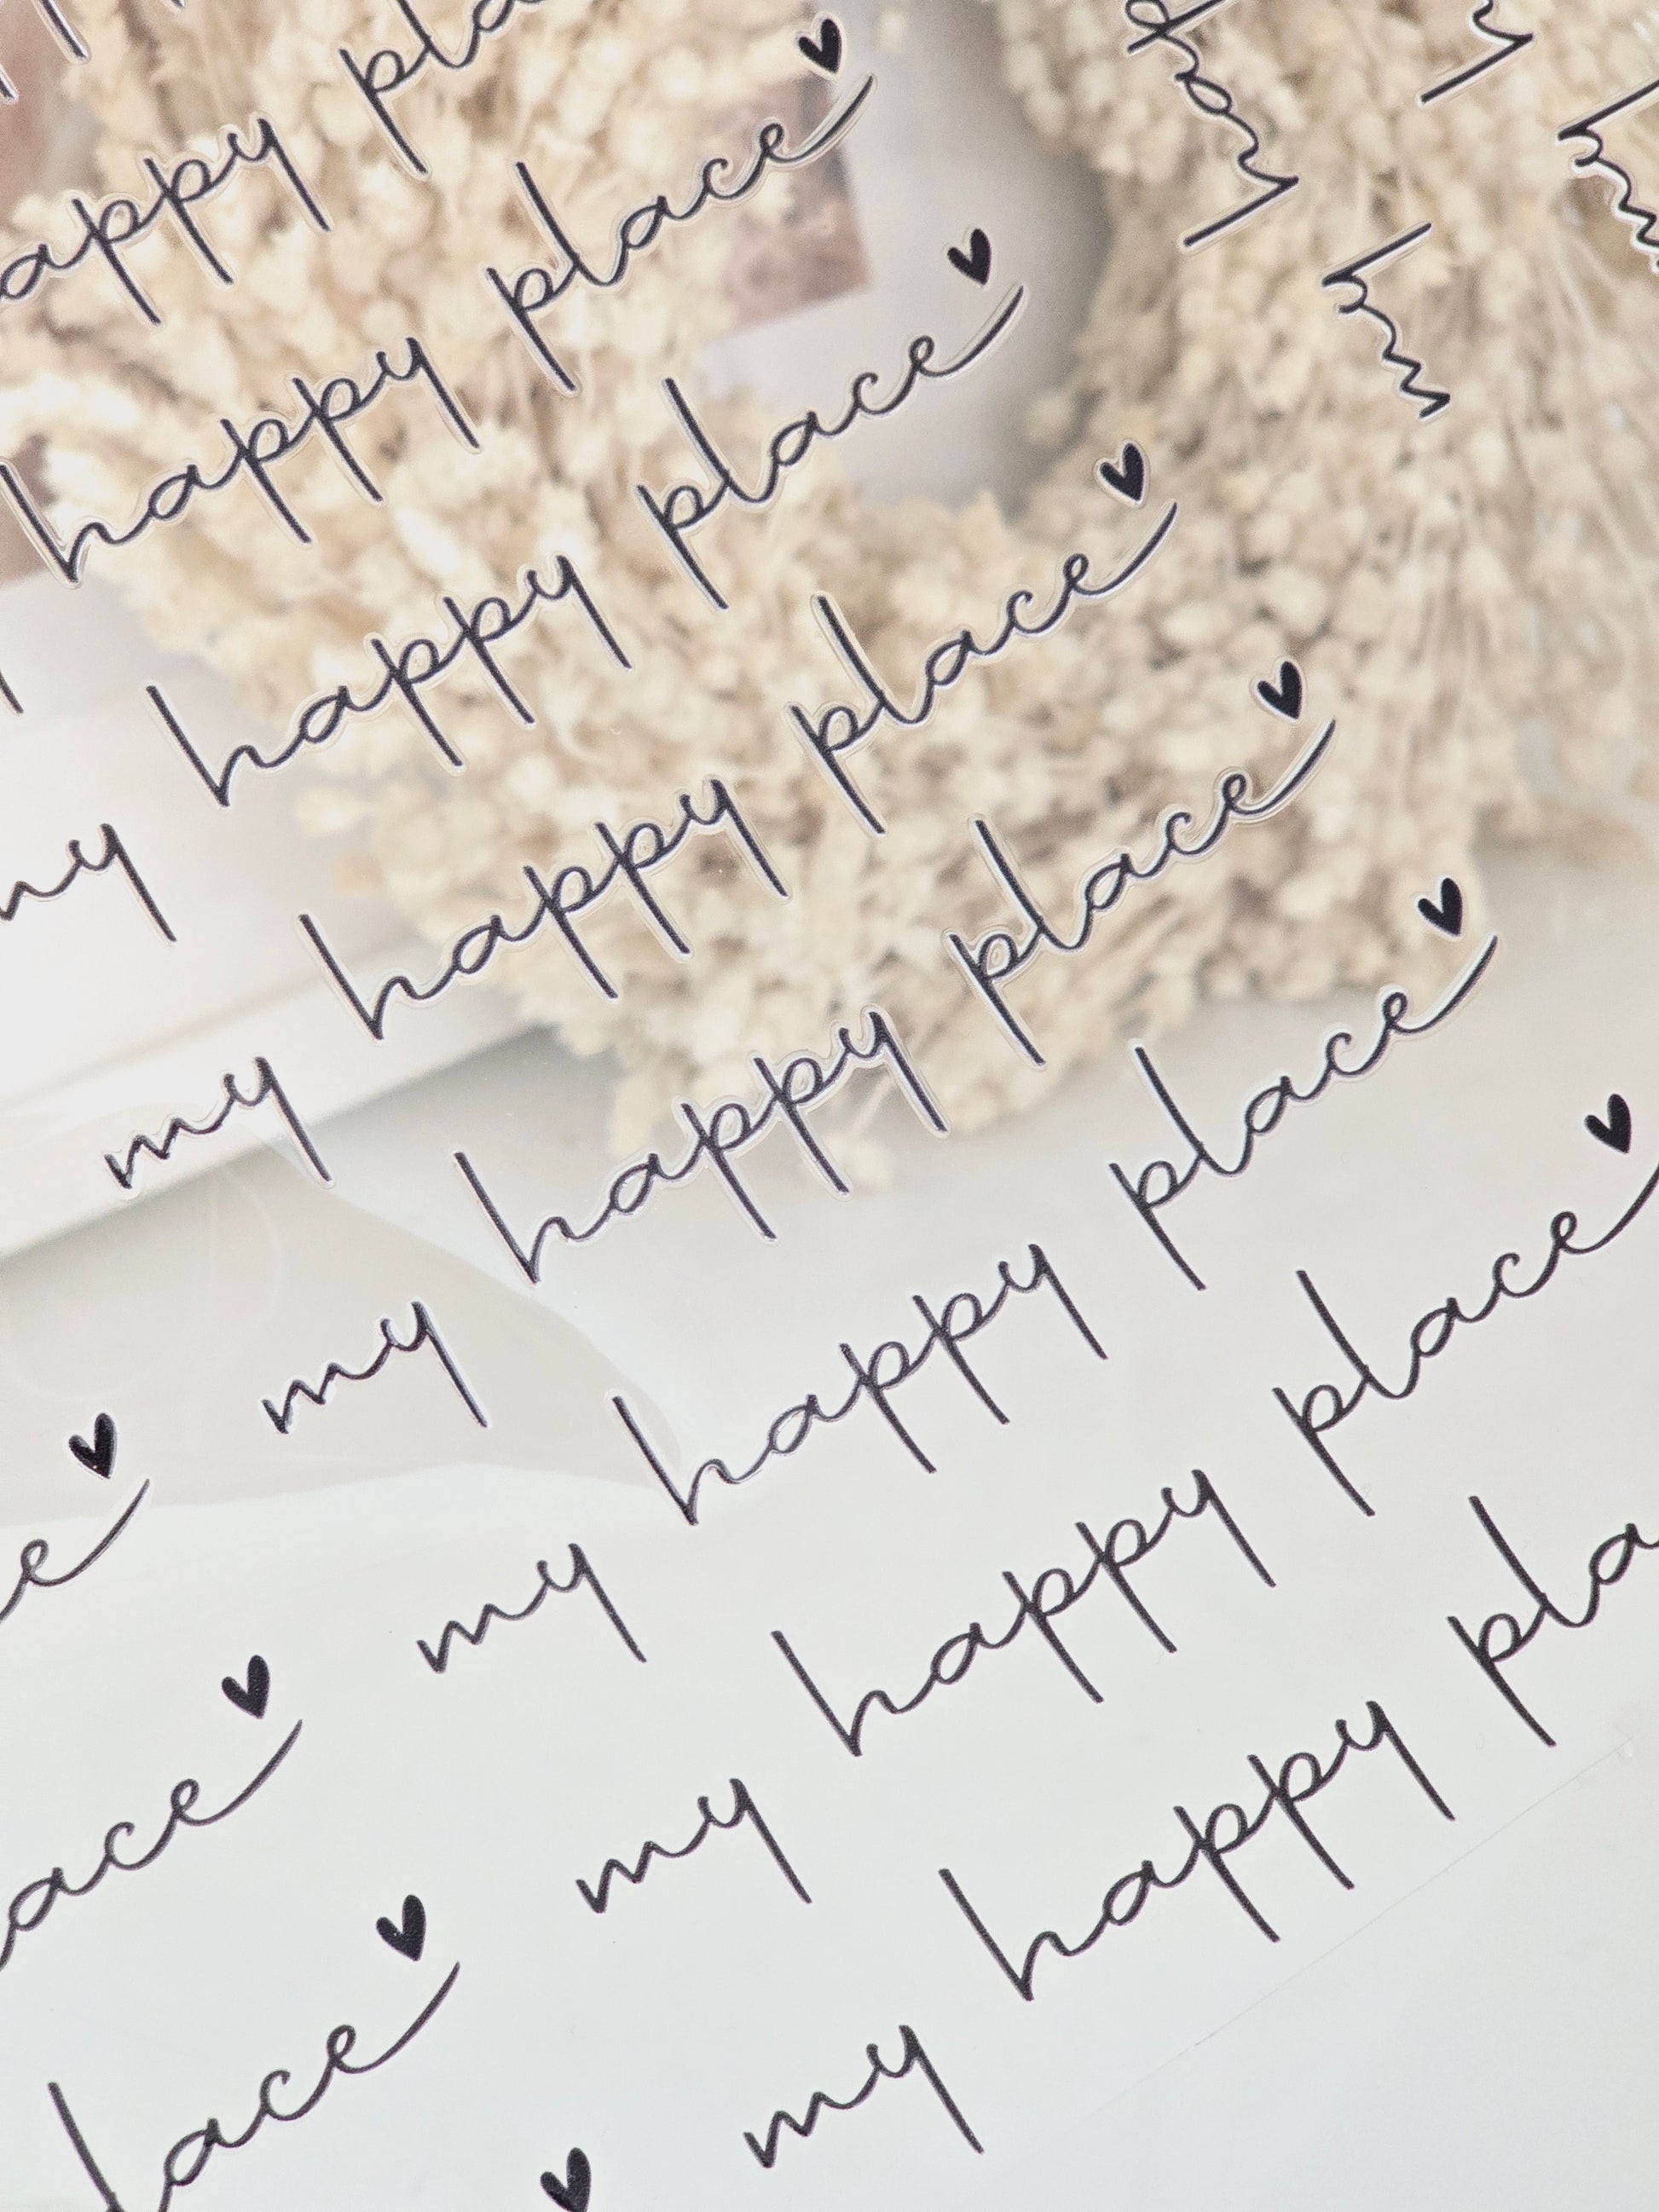 appy pla
happy place
happy place
my happy place
my happy place
my happy place
my happy place
my happy pla
my
e
ace
lace